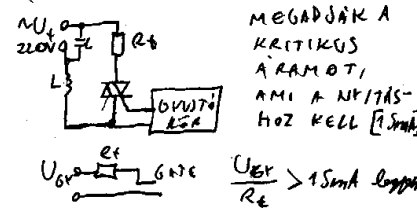 ~Ut
220V
C
Rt
L
GYÚJTÓ
ÁR.
MEGADJÁK A
KRITIKUS
ÁRAMOT,
AMI A NYITÁS-
HOZ KELL [15mA]
UGT
Rt
GATE
UGT / Rt > 15mA legyen